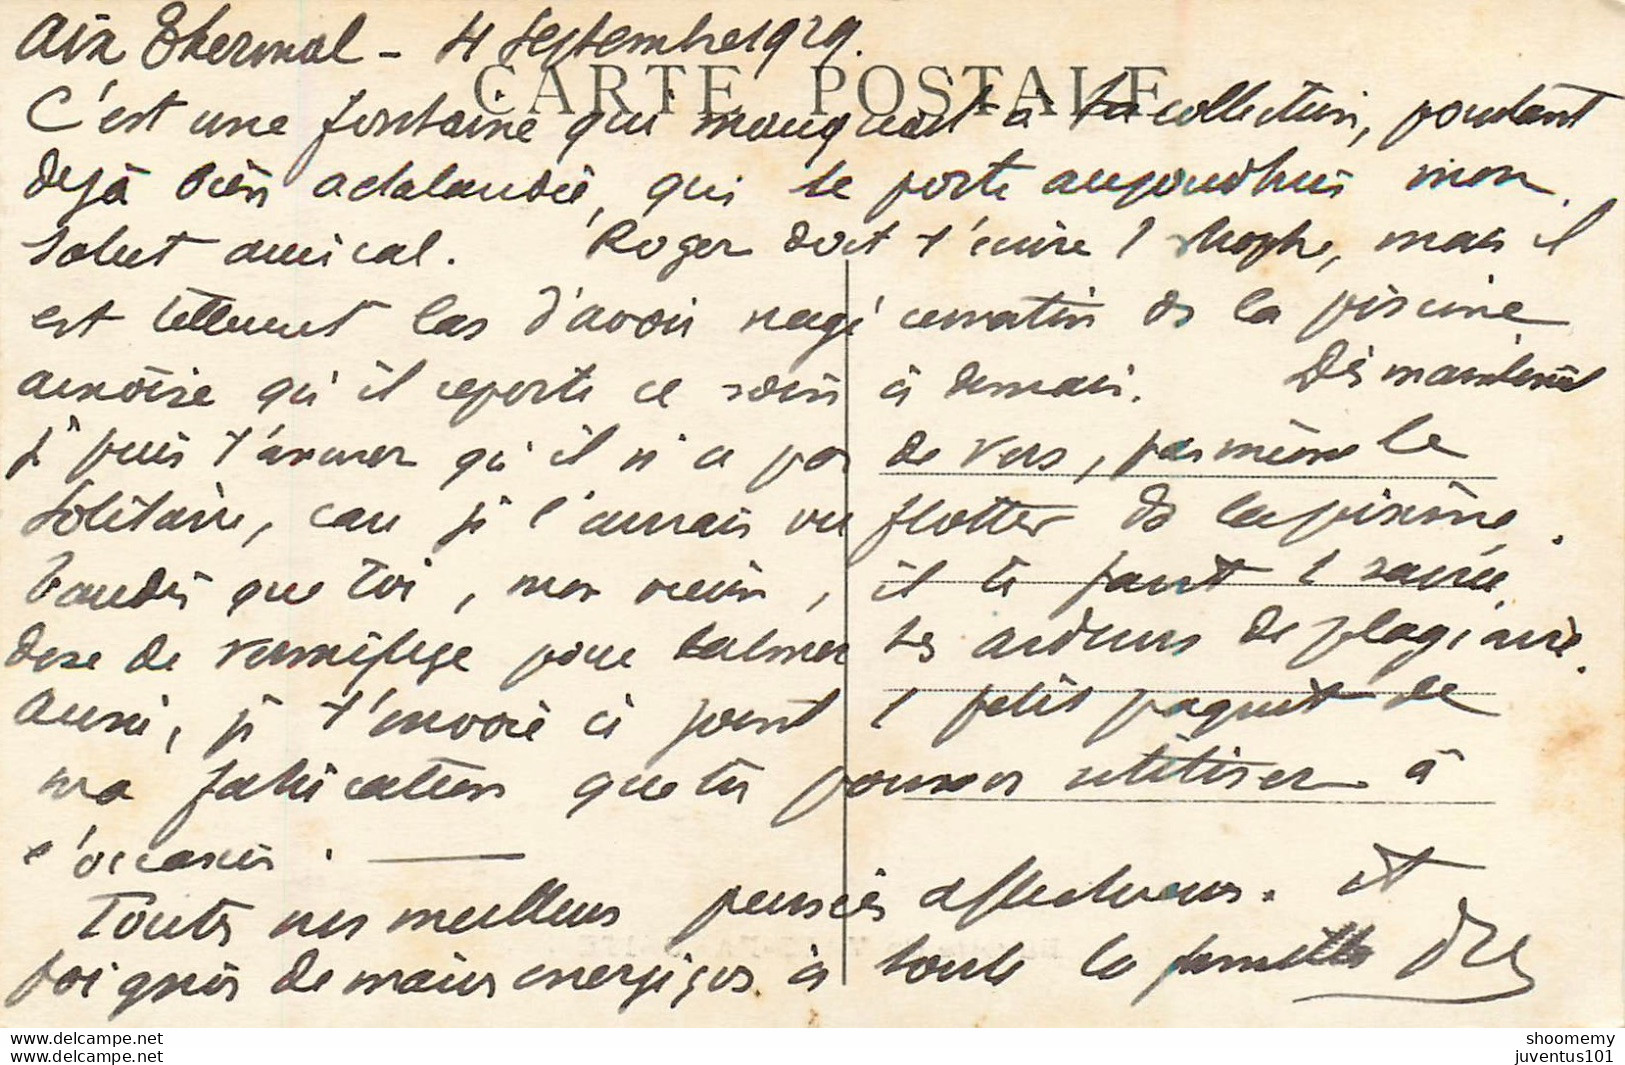 Aix Thermal - 4 Septembre 1929.
CARTE POSTALE
C'est une fontaine qui manquait à ta collection, pourtant
déjà bien achalandée, qui te porte aujourd'hui mon
salut amical. Roger doit t'écrire 1 strophe, mais il
est tellement las d'avoir nagé ce matin ds la piscine
aixoise qu'il reporte ce soin à demain. Dès maintenant
je puis t'assurer qu'il n'a pas de vers, pas même le
solitaire, car je l'aurais vu flotter ds la piscine.
Tandis que toi, mon vieux, il te faut 1 sacrée
dose de vermifuge pour calmer tes ardeurs de plagiaire.
Aussi, je t'envoie ci joint 1 petit paquet de
ma fabrication que tu pourras utiliser à
l'occasion.
Toutes nos meilleures pensées affectueuses. et
poignées de mains énergiques à toute la famille
shoomemy
juventus101
www.delcampe.net